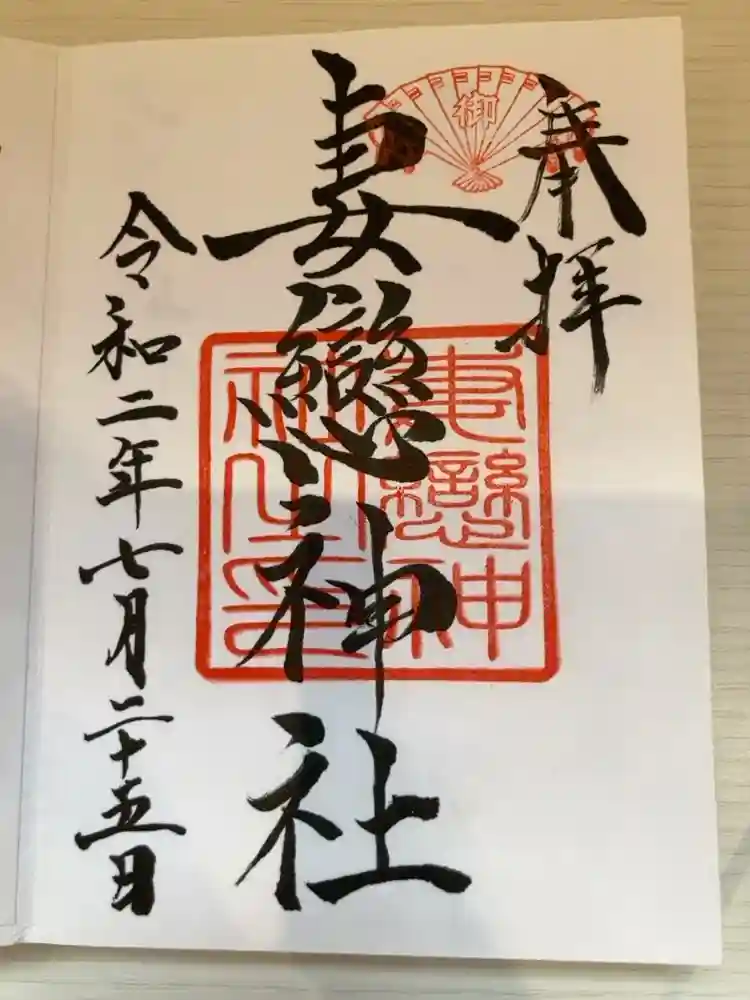 奉拝
御
妻戀神社
妻戀神
社之印
令和二年七月二十五日